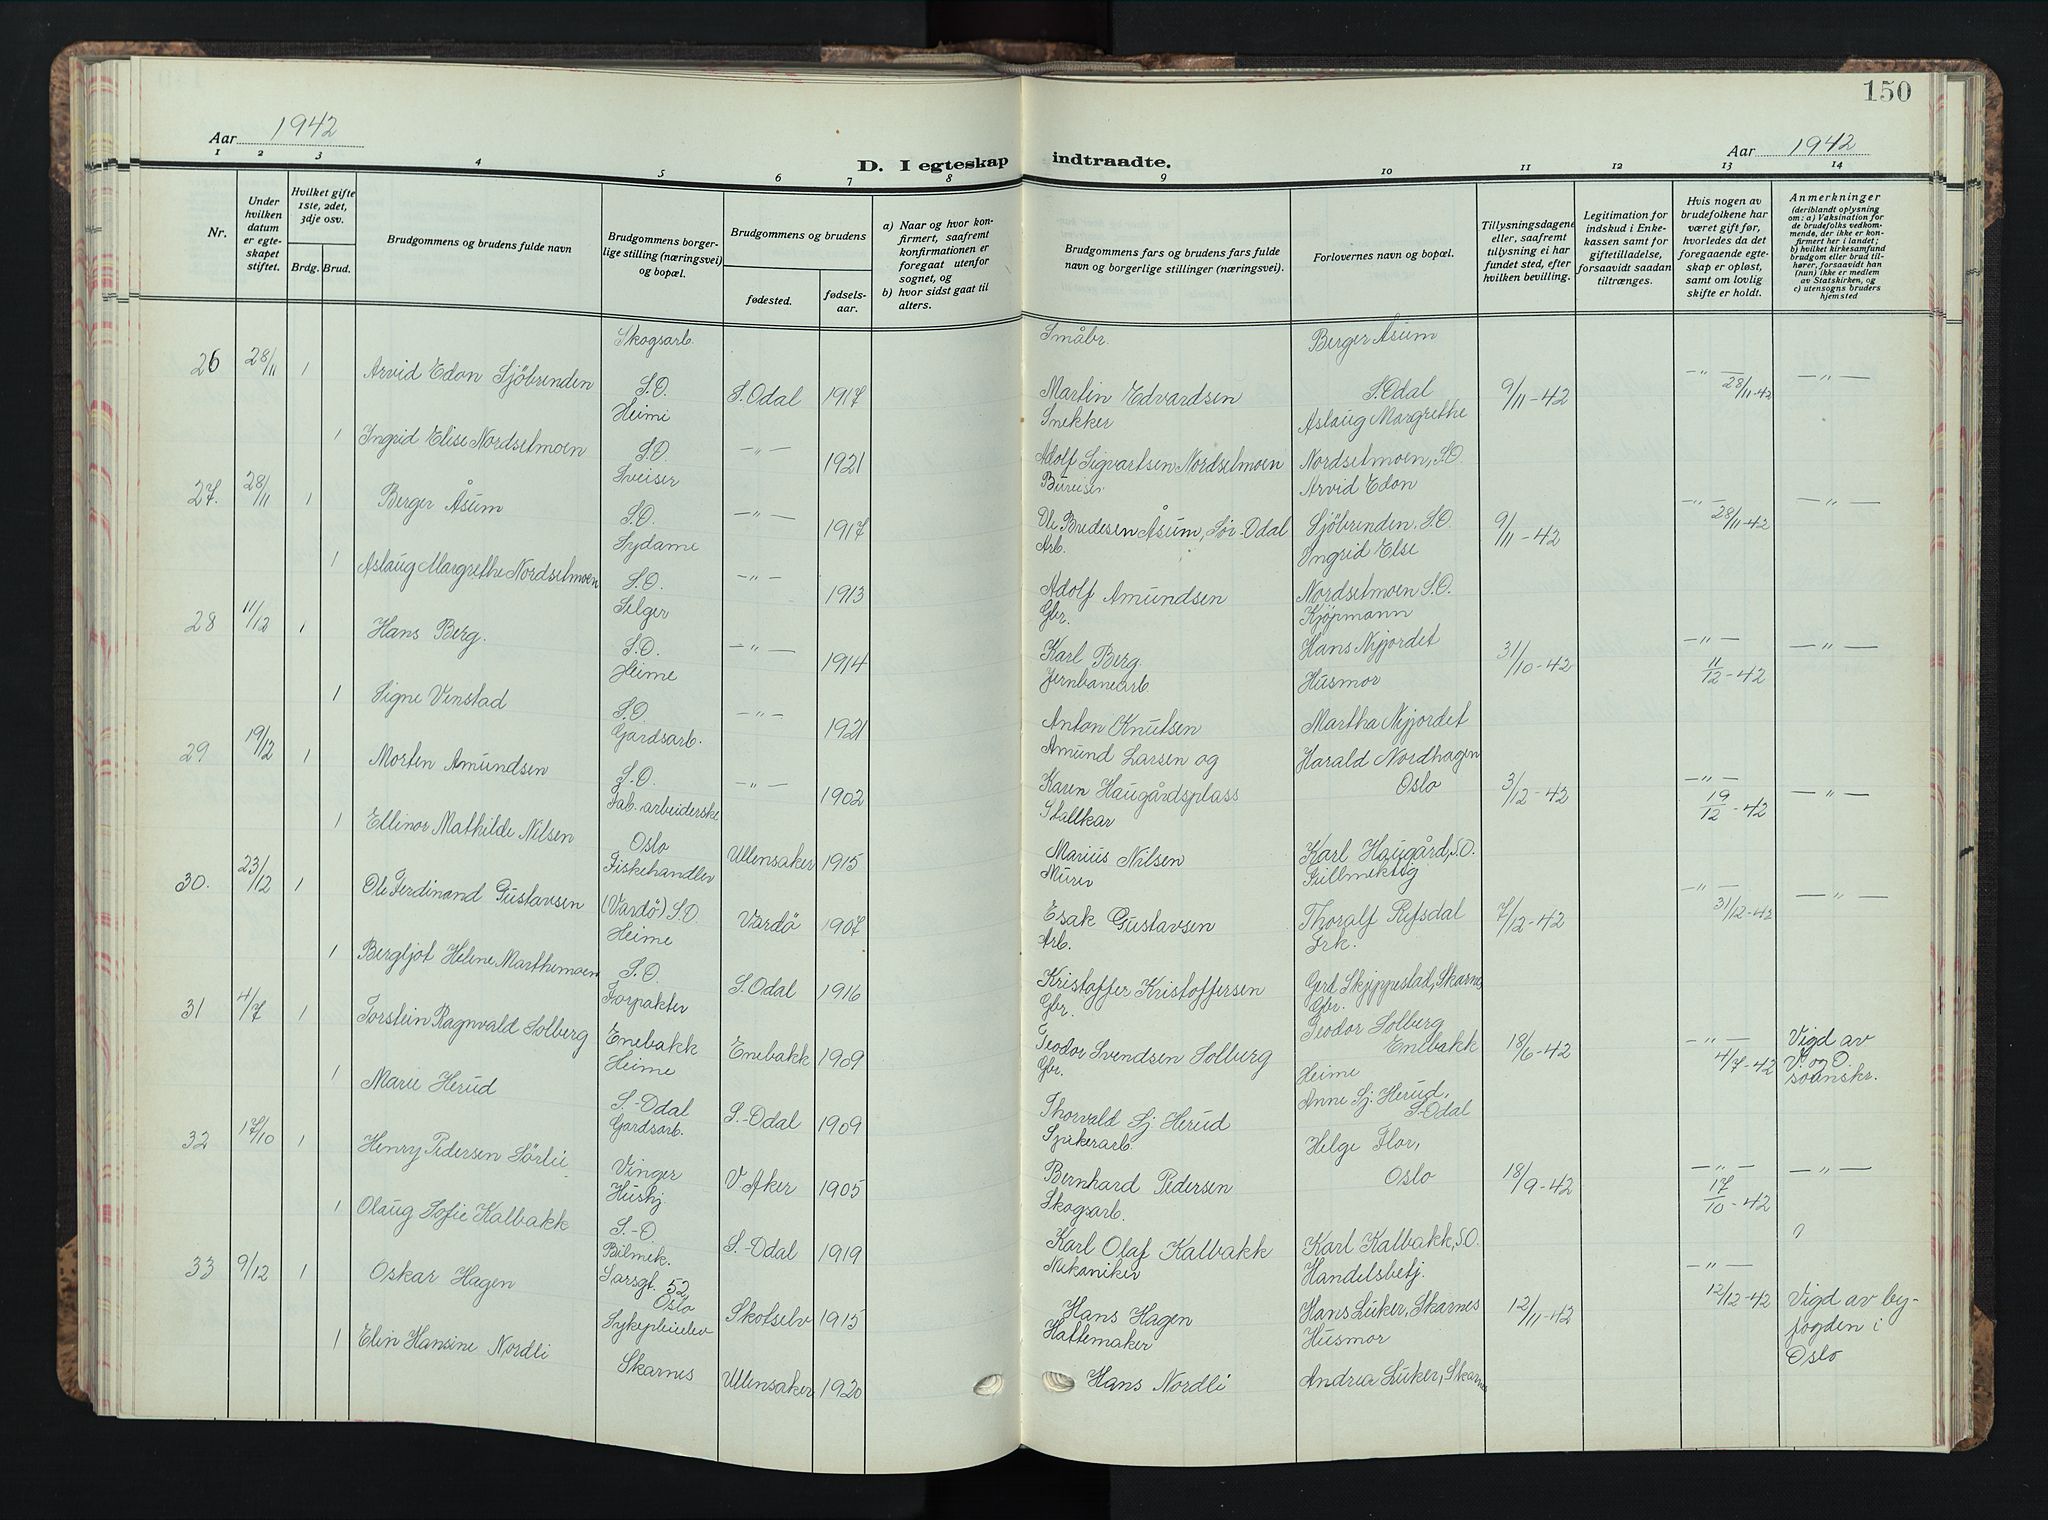 150
Aar 1942
D. I egteskap indtraadte.
Aar 1942
1 2 3 4 5 6 7 8 9 10 11 12 13 14
Nr.
Under hvilken datum er egteskapet stiftet.
Hvilket gifte 1ste, 2det, 3dje osv.
Brdg. Brud.
Brudgommens og brudens fulde navn
Brudgommens borgerlige stilling (næringsvei) og bopæl.
Brudgommens og brudens
fødested.
fødselsaar.
a) Naar og hvor konfirmert, saafremt konfirmationen er foregaat utenfor sognet, og
b) hvor sidst gaat til alters.
Brudgommens fars og brudens fars fulde navn og borgerlige stillinger (næringsvei).
Forlovernes navn og bopæl.
Tillysningsdagene eller, saafremt tillysning ei har fundet sted, efter hvilken bevilling.
Legitimation for indskud i Enkekassen samt for giftetilladelse, forsaavidt saadan tiltrænges.
Hvis nogen av brudefolkene har været gift før, hvorledes da det foregaaende egteskap er opløst, samt om lovlig skifte er holdt.
Anmerkninger
(deriblandt oplysning om: a) Vaksination for de brudefolks vedkommende, der ikke er konfirmert her i landet; b) hvilket kirkesamfund brudgom eller brud tilhører, forsaavidt han (hun) ikke er medlem av Statskirken, og c) utensogns bruders hjemsted
Skogsarb. Småbr. Berger Åsum
26 28/11 1 Arvid Edon Sjöbrenden S.O. S. Odal 1917 Martin Edvardsen S. Odal 9/11-42 — " — 28/11-42 — " —
Heime Snekker Aslaug Margrethe
1 Ingrid Elise Nordselmoen S.O. — " — 1921 Adolf Sigvartsen Nordselmoen Nordselmoen, S.O.
Sveiser Bureiser Arvid Edon
27. 28/11 1 Berger Åsum S.O. — " — 1917 Ole Bredesen Åsum, Sör-Odal Sjöbrenden, S.O. 9/11-42 — " — 28/11-42 — " —
Sydame Arb. Ingrid Else
1 Aslaug Margrethe Nordselmoen S.O. — " — 1913 Adolf Amundsen Nordselmoen S.O.
Selger Gbr. Kjøpmann
28 11/12 1 Hans Berg. S.O. — " — 1914 Karl Berg. Hans Nyjordet 31/10-42 — " — 11/12-42 — " —
Heime Jernbanearb. Husmor
1 Signe Venstad S.O — " — 1921 Anton Knutsen Martha Nyjordet
Gårdsarb. Amund Larsen og Harald Nordhagen
29 19/12 1 Morten Amundsen S.O. — " — 1902 Karen Haugårdsplass Oslo 3/12-42 — " — 19/12-42 — " —
Fab. arbeiderske Stallkar
1 Ellinor Mathilde Nilsen Oslo Ullensaker 1915 Marius Nilsen Karl Haugård, S.O.
Fiskehandler Murer Fullmektig
30. 23/12 1 Ole Ferdinand Gustavsen (Vardö) S.O. Vardö 1907 Esak Gustavsen Thoralf Refsdal 7/12-42 — " — 31/12-42 — " —
Heime Arb. Frk.
1 Bergljot Helene Marthemoen S.O. S. Odal 1916 Kristoffer Kristoffersen Gerd Skjeppestad, Skarnes
Forpakter Gbr. Gbr.
31 4/7 1 Torstein Ragnvald Solberg Enebakk Enebakk 1909 Teodor Svendsen Solberg Teodor Solberg Enebakk 18/6-42 — " — 4/7-42 Vigd av V. og Ö. soknskr.
Heime Gbr. Heime
1 Marie Herud S.-Odal S.-Odal 1909 Thorvald Sj. Herud Anne Sj. Herud, S-Odal
Gardsarb. Spikerarb.
32 17/10 1 Henry Pedersen Sörlie Vinger V. Aker 1905 Bernhard Pedersen Helge Flor, Oslo 18/9-42 — " — 17/10-42 — " —
Hushj. Skogsarb.
1 Olaug Sofie Kalbakk S.-O. S.-Odal 1919 Karl Olaf Kalbakk Karl Kalbakk, S.O. ?
Bilmek. Mekaniker Handelsbetj.
33 9/12 1 Oskar Hagen Sarsgt. 52, Oslo Skotselv 1915 Hans Hagen Hans Luker, Skarnes 12/11-42 — " — 12/12-42 Vigd av byfogden i Oslo
Sykepleielev Hattemaker Husmor
1 Elin Hansine Nordli Skarnes Ullensaker 1920 Hans Nordli Andrea Luker, Skarnes